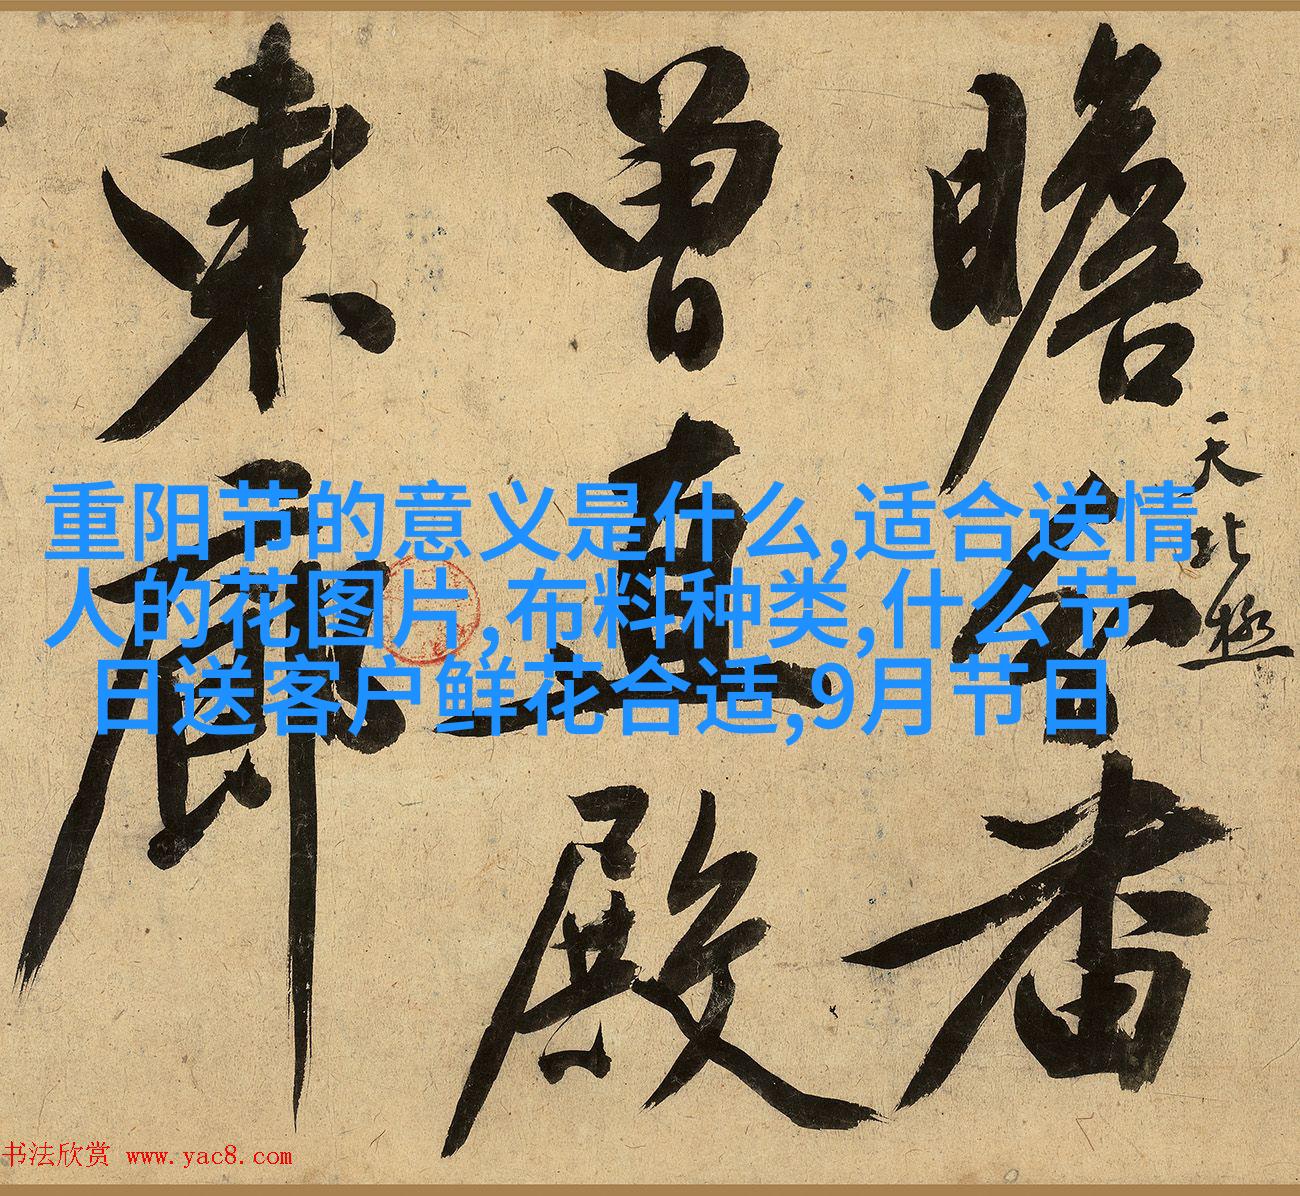 瞻者
天北極
曾直殿
東廊
重阳节的意义是什么,适合送情
人的花图片,布料种类,什么节
日送客户鲜花合适,9月节日
书法欣赏 www.yac8.com